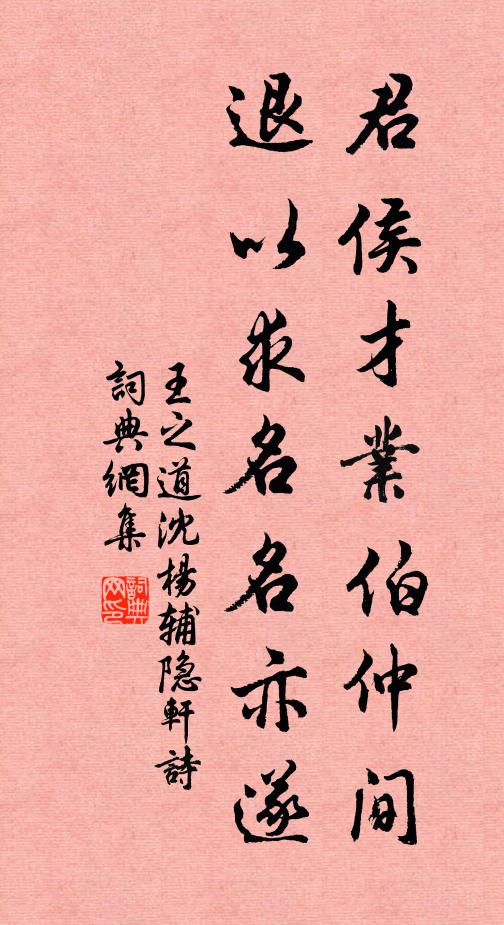 君侯才業伯仲间
退以求名名亦遂
王之道沈楊辅隐軒詩
詞典網集
詞典网印